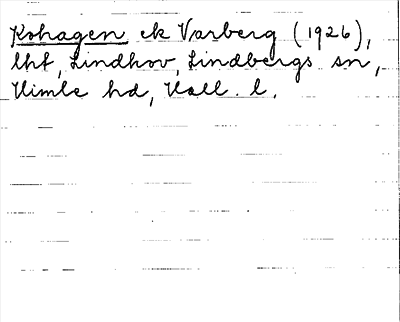 Kohagen ek Varberg (1926),
lht, Lindhov, Lindbergs sn,
Himle hd, Hall. l.